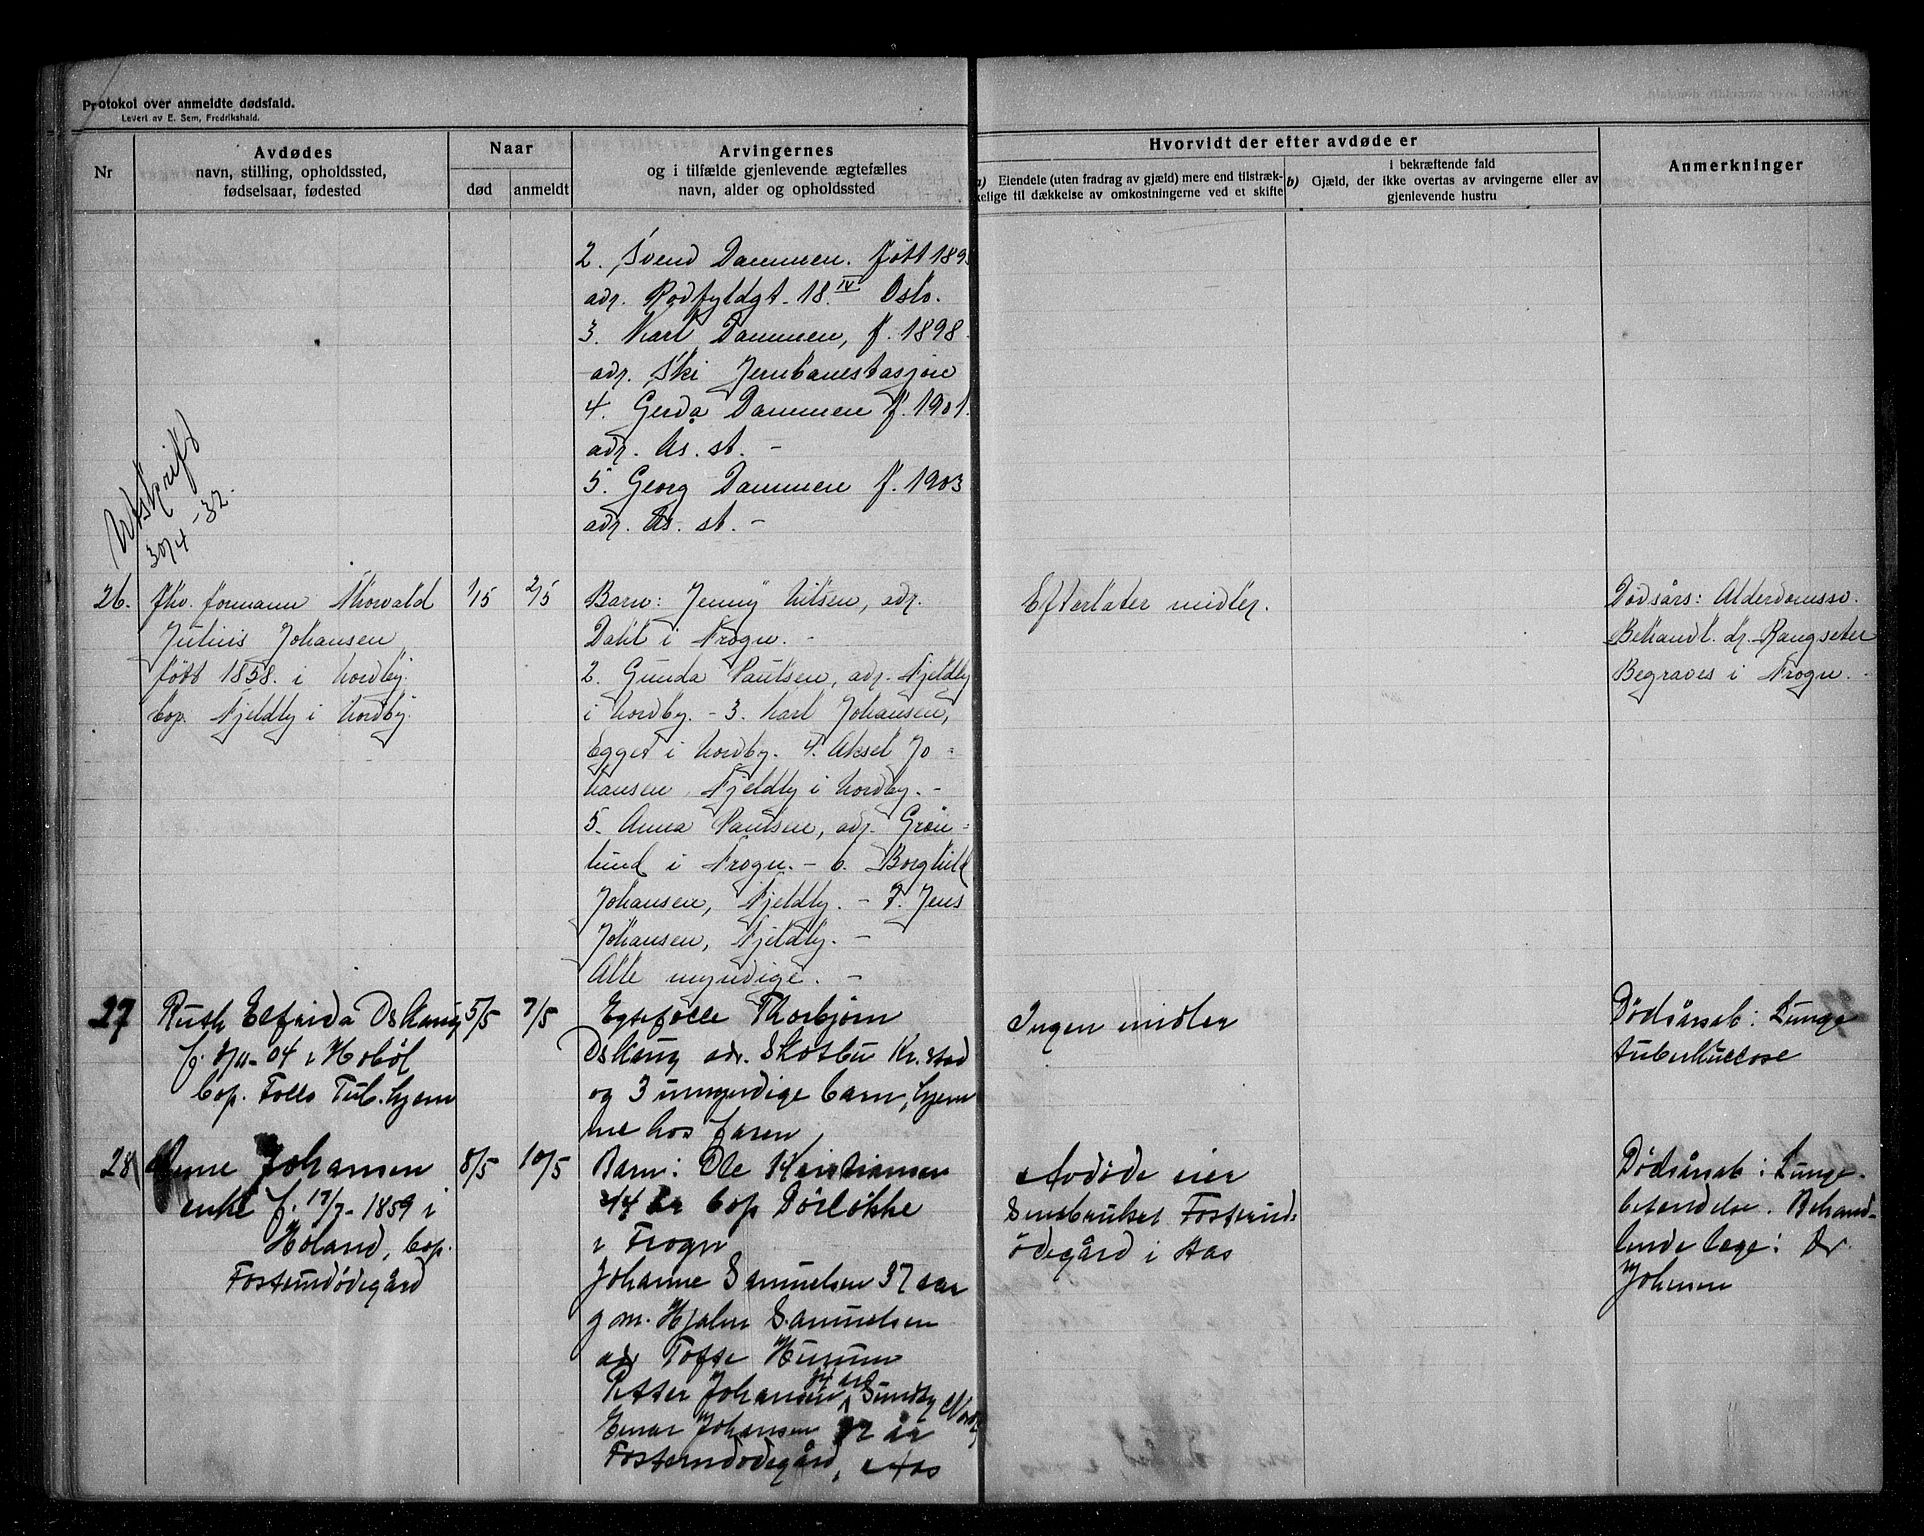 Protokol over anmeldte dødsfald.
Levert av E. Sem, Fredrikshald.
Nr
Avdødes
navn, stilling, opholdssted,
fødselsaar, fødested
Naar
død
anmeldt
Arvingernes
og i tilfælde gjenlevende ægtefælles
navn, alder og opholdssted
Hvorvidt der efter avdøde er
a) Eiendele (uten fradrag av gjæld) mere end tilstræk-
kelige til dækkelse av omkostningerne ved et skifte
i bekræftende fald
b) Gjæld, der ikke overtas av arvingerne eller av
gjenlevende hustru
Anmerkninger
2. Svend Dammen. født 189
adr. Rodfyldgt. 18 IV Oslo.
3. Karl Dammen, f. 1898
adr. Ski Jernbanestasjon
4. Gerda Dammen f. 1901.
adr. Ås. st. -
5. Georg Dammen f. 1903
adr. Ås. st. -
Utskrift
30/4 -32.
26. Fhv. formann Thorvald
Julius Johansen
født 1858. i Nordby.
bop. Fjeldby i Nordby.
1/5
2/5
Barn: Jenny Nilsen, adr.
Dahl i Frogn. -
2. Gunda Paulsen, adr. Fjeldby
i Nordby. - 3. Karl Johansen,
Egget i Nordby. 4. Aksel Jo-
hansen, Fjeldby i Nordby. -
5. Anna Paulsen, adr. Grøn-
lund i Frogn. - 6. Borghild
Johansen, Fjeldby. - 7. Jens
Johansen, Fjeldby. -
Alle myndige. -
Efterlater midler.
Dødsårs: Alderdomssv.
Behandl. dr. Rangseter
Begraves i Frogn. -
27 Ruth Elfrida Oskaug
f. 8/11-04 i Hobøl
bop. Follo Tub.hjem
5/5
7/5
Egtefelle Thorbjørn
Oskaug adr. Skotbu Kr.stad
og 3 umyndige barn, hjem
me hos faren
Ingen midler
Dødsårsak: Lunge
tuberkulose
28 Johansen
enke f. 17/7-1859 i
Høland, bop.
Fosterudødegård
8/5
10/5
Barn: Ole Kristiansen
44 år bop Dørløkke
i Frogn
Johanne Samuelsen 37 aar
g m. Hjalm Samuelsen
adr Tofte Hurum
Petter Johansen Sundby
Einar Johansen år
Fosterudødegård, Aas
Avdøde eier
Småbruket Fosterud-
ødegård i Aas
Dødsårsak: Lunge-
betendelse. Behand-
lende læge: Dr.
Johnsen